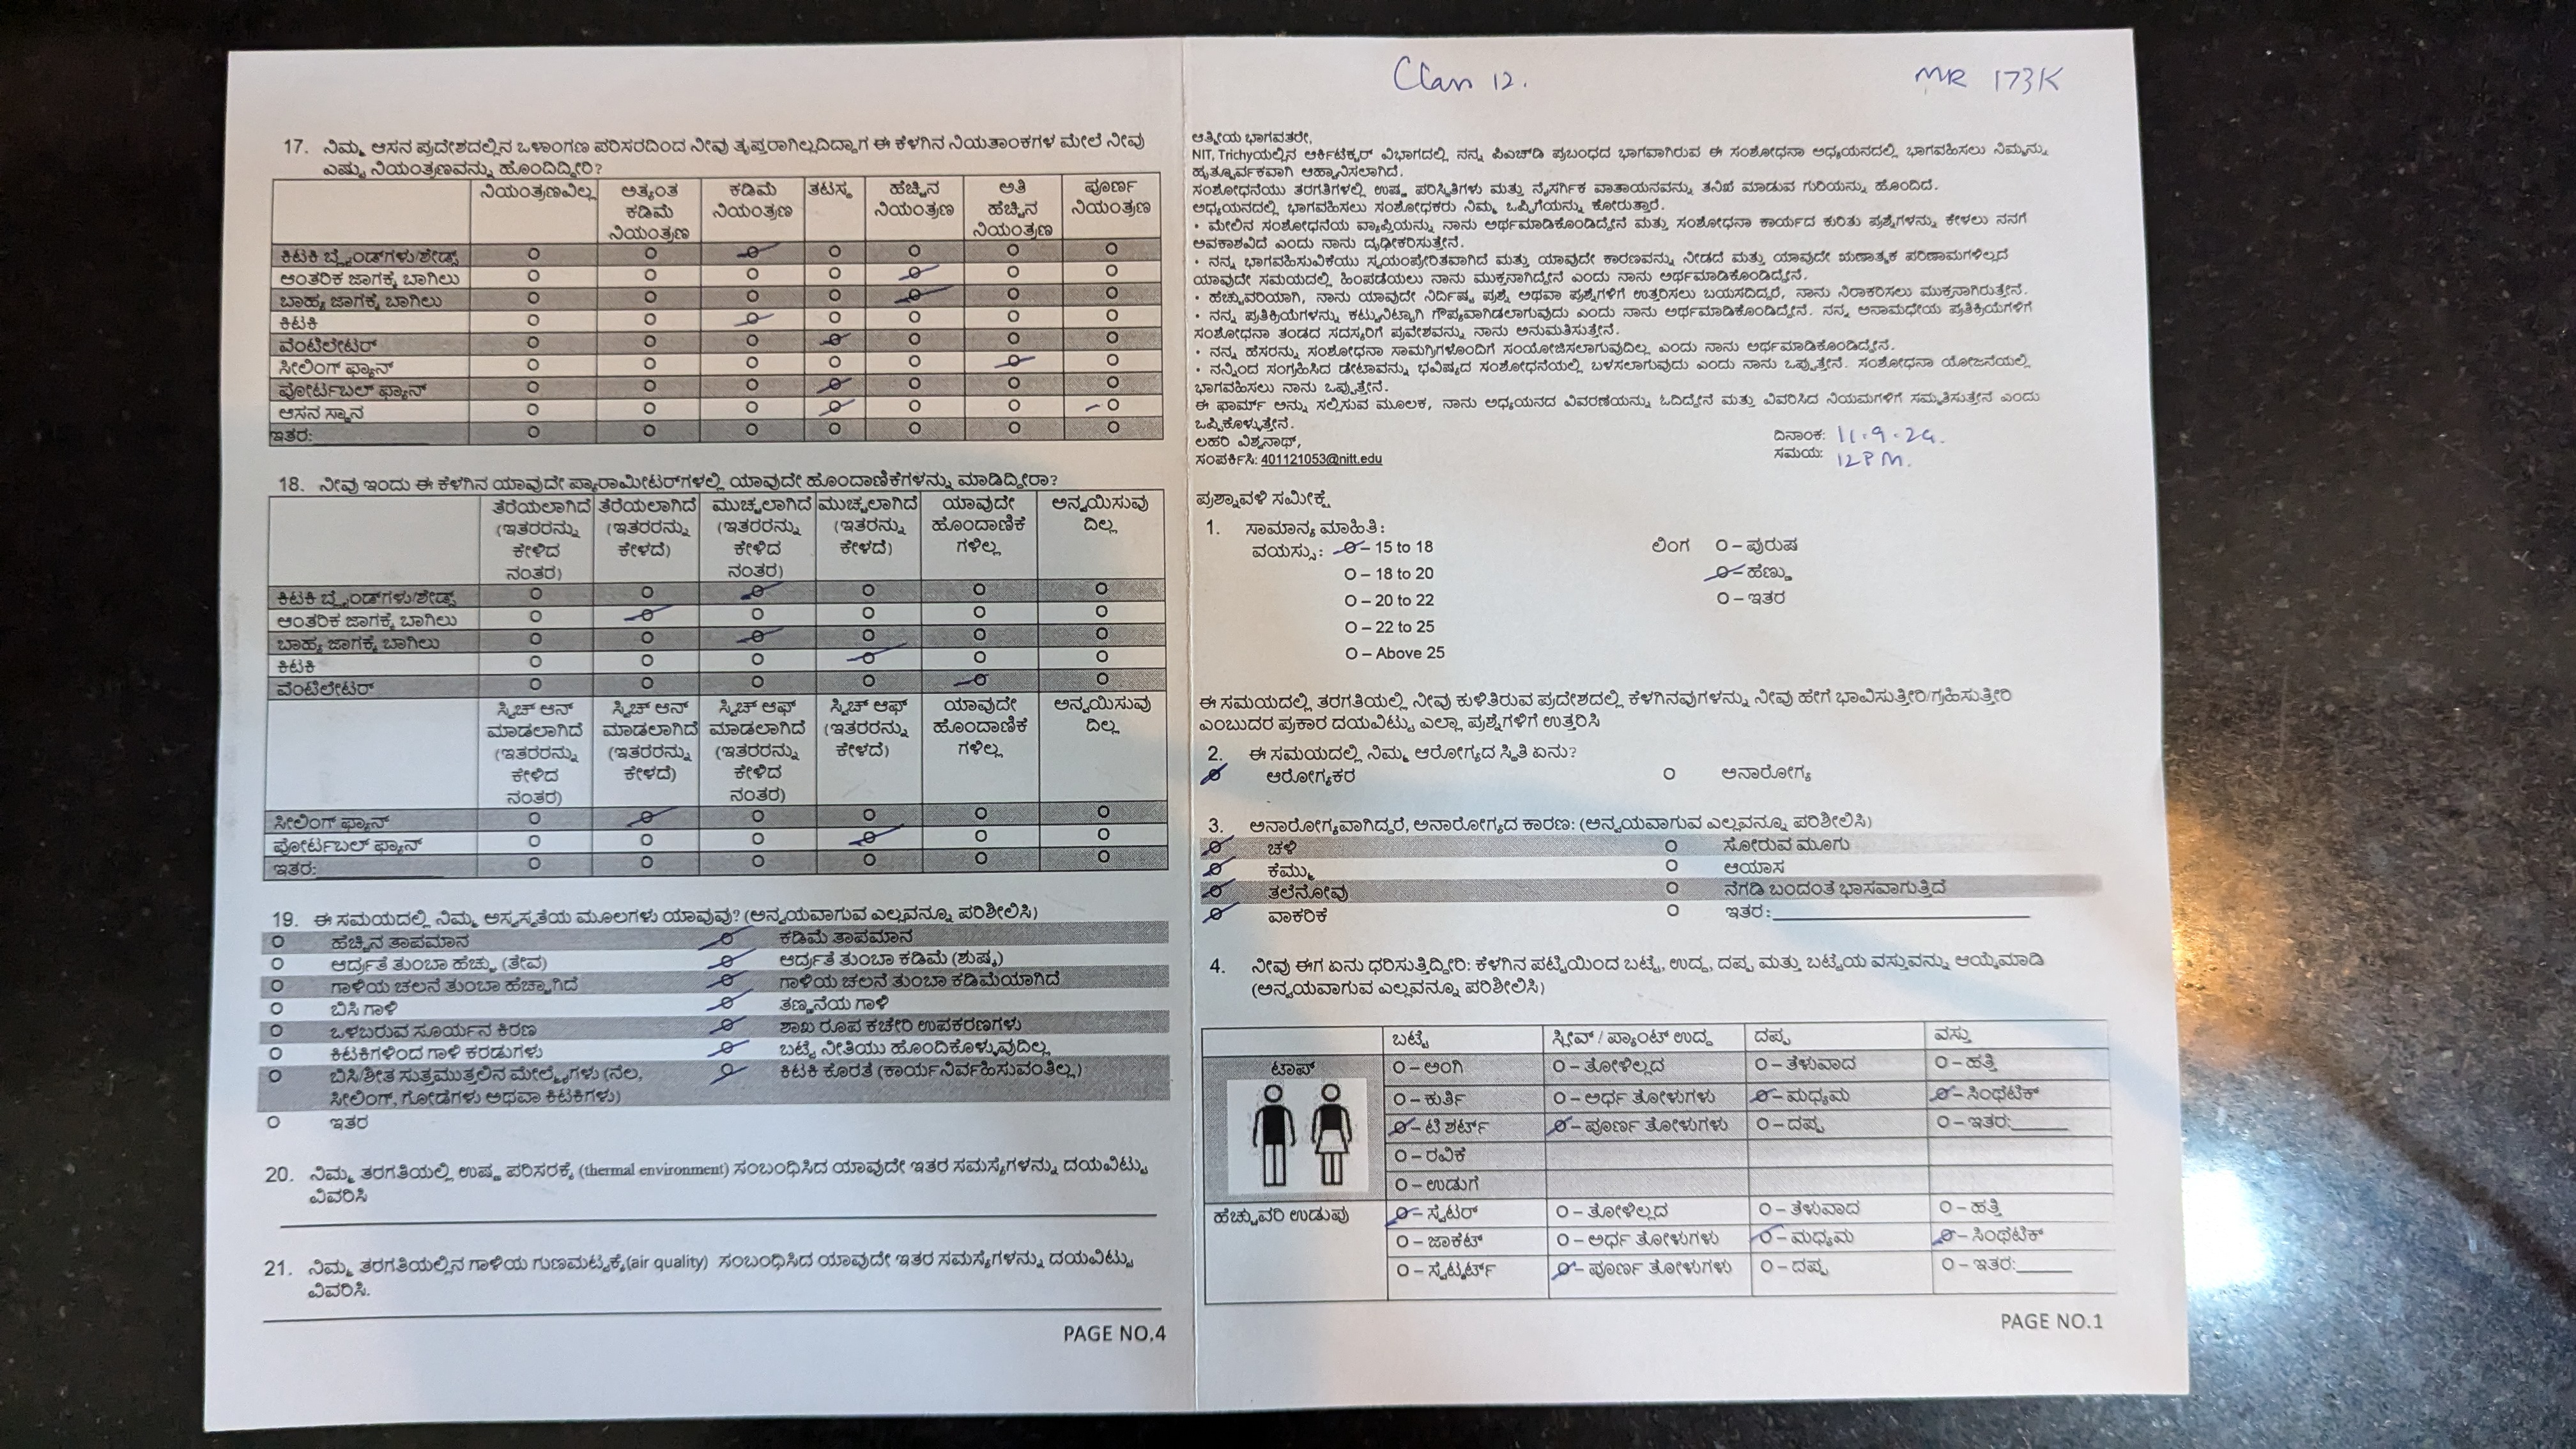 17. ನಿಮ್ಮ ಆಸನ ಪ್ರದೇಶದಲ್ಲಿನ ಒಳಾಂಗಣ ಪರಿಸರದಿಂದ ನೀವು ತೃಪ್ತರಾಗಿಲ್ಲದಿದ್ದಾಗ ಈ ಕೆಳಗಿನ ನಿಯತಾಂಕಗಳ ಮೇಲೆ ನೀವು
ಎಷ್ಟು ನಿಯಂತ್ರಣವನ್ನು ಹೊಂದಿದ್ದೀರಿ?
ನಿಯಂತ್ರಣವಿಲ್ಲ ಅತ್ಯಂತ ಕಡಿಮೆ ನಿಯಂತ್ರಣ ಕಡಿಮೆ ನಿಯಂತ್ರಣ ತಟಸ್ಥ ಹೆಚ್ಚಿನ ನಿಯಂತ್ರಣ ಅತಿ ಹೆಚ್ಚಿನ ನಿಯಂತ್ರಣ ಪೂರ್ಣ ನಿಯಂತ್ರಣ
ಕಿಟಕಿ ಬ್ಲೈಂಡ್‌ಗಳು/ಶೇಡ್ಸ್ O O O O O O O
ಆಂತರಿಕ ಜಾಗಕ್ಕೆ ಬಾಗಿಲು O O O O O O O
ಬಾಹ್ಯ ಜಾಗಕ್ಕೆ ಬಾಗಿಲು O O O O O O O
ಕಿಟಕಿ O O O O O O O
ವೆಂಟಿಲೇಟರ್ O O O O O O O
ಸೀಲಿಂಗ್ ಫ್ಯಾನ್ O O O O O O O
ಪೋರ್ಟಬಲ್ ಫ್ಯಾನ್ O O O O O O O
ಆಸನ ಸ್ಥಾನ O O O O O O O
ಇತರ: O O O O O O O
18. ನೀವು ಇಂದು ಈ ಕೆಳಗಿನ ಯಾವುದೇ ಪ್ಯಾರಾಮೀಟರ್‌ಗಳಲ್ಲಿ ಯಾವುದೇ ಹೊಂದಾಣಿಕೆಗಳನ್ನು ಮಾಡಿದ್ದೀರಾ?
ತೆರೆಯಲಾಗಿದೆ (ಇತರರನ್ನು ಕೇಳಿದ ನಂತರ) ತೆರೆಯಲಾಗಿದೆ (ಇತರರನ್ನು ಕೇಳದೆ) ಮುಚ್ಚಲಾಗಿದೆ (ಇತರರನ್ನು ಕೇಳಿದ ನಂತರ) ಮುಚ್ಚಲಾಗಿದೆ (ಇತರರನ್ನು ಕೇಳದೆ) ಯಾವುದೇ ಹೊಂದಾಣಿಕೆ ಗಳಿಲ್ಲ ಅನ್ವಯಿಸುವು ದಿಲ್ಲ
ಕಿಟಕಿ ಬ್ಲೈಂಡ್‌ಗಳು/ಶೇಡ್ಸ್ O O O O O O
ಆಂತರಿಕ ಜಾಗಕ್ಕೆ ಬಾಗಿಲು O O O O O O
ಬಾಹ್ಯ ಜಾಗಕ್ಕೆ ಬಾಗಿಲು O O O O O O
ಕಿಟಕಿ O O O O O O
ವೆಂಟಿಲೇಟರ್ O O O O O O
ಸ್ವಿಚ್ ಆನ್ ಮಾಡಲಾಗಿದೆ (ಇತರರನ್ನು ಕೇಳಿದ ನಂತರ) ಸ್ವಿಚ್ ಆನ್ ಮಾಡಲಾಗಿದೆ (ಇತರರನ್ನು ಕೇಳದೆ) ಸ್ವಿಚ್ ಆಫ್ ಮಾಡಲಾಗಿದೆ (ಇತರರನ್ನು ಕೇಳಿದ ನಂತರ) ಸ್ವಿಚ್ ಆಫ್ (ಇತರರನ್ನು ಕೇಳದೆ) ಯಾವುದೇ ಹೊಂದಾಣಿಕೆ ಗಳಿಲ್ಲ ಅನ್ವಯಿಸುವು ದಿಲ್ಲ
ಸೀಲಿಂಗ್ ಫ್ಯಾನ್ O O O O O O
ಪೋರ್ಟಬಲ್ ಫ್ಯಾನ್ O O O O O O
ಇತರ: O O O O O O
19. ಈ ಸಮಯದಲ್ಲಿ ನಿಮ್ಮ ಅಸ್ವಸ್ಥತೆಯ ಮೂಲಗಳು ಯಾವುವು? (ಅನ್ವಯವಾಗುವ ಎಲ್ಲವನ್ನೂ ಪರಿಶೀಲಿಸಿ)
O ಹೆಚ್ಚಿನ ತಾಪಮಾನ O ಕಡಿಮೆ ತಾಪಮಾನ
O ಆರ್ದ್ರತೆ ತುಂಬಾ ಹೆಚ್ಚು (ತೇವ) O ಆರ್ದ್ರತೆ ತುಂಬಾ ಕಡಿಮೆ (ಶುಷ್ಕ)
O ಗಾಳಿಯ ಚಲನೆ ತುಂಬಾ ಹೆಚ್ಚಾಗಿದೆ O ಗಾಳಿಯ ಚಲನೆ ತುಂಬಾ ಕಡಿಮೆಯಾಗಿದೆ
O ಬಿಸಿ ಗಾಳಿ O ತಣ್ಣನೆಯ ಗಾಳಿ
O ಒಳಬರುವ ಸೂರ್ಯನ ಕಿರಣ O ಶಾಖ ರೂಪ ಕಚೇರಿ ಉಪಕರಣಗಳು
O ಕಿಟಕಿಗಳಿಂದ ಗಾಳಿ ಕರಡುಗಳು O ಬಟ್ಟೆ ನೀತಿಯು ಹೊಂದಿಕೊಳ್ಳುವುದಿಲ್ಲ
O ಬಿಸಿ/ಶೀತ ಸುತ್ತಮುತ್ತಲಿನ ಮೇಲ್ಮೈಗಳು (ನೆಲ, O ಕಿಟಕಿ ಕೊರತೆ (ಕಾರ್ಯನಿರ್ವಹಿಸುವಂತಿಲ್ಲ)
ಸೀಲಿಂಗ್, ಗೋಡೆಗಳು ಅಥವಾ ಕಿಟಕಿಗಳು)
O ಇತರ
20. ನಿಮ್ಮ ತರಗತಿಯಲ್ಲಿ ಉಷ್ಣ ಪರಿಸರಕ್ಕೆ (thermal environment) ಸಂಬಂಧಿಸಿದ ಯಾವುದೇ ಇತರ ಸಮಸ್ಯೆಗಳನ್ನು ದಯವಿಟ್ಟು
ವಿವರಿಸಿ
21. ನಿಮ್ಮ ತರಗತಿಯಲ್ಲಿನ ಗಾಳಿಯ ಗುಣಮಟ್ಟಕ್ಕೆ(air quality) ಸಂಬಂಧಿಸಿದ ಯಾವುದೇ ಇತರ ಸಮಸ್ಯೆಗಳನ್ನು ದಯವಿಟ್ಟು
ವಿವರಿಸಿ.
PAGE NO.4
Clan 12. MR 173K
ಆತ್ಮೀಯ ಭಾಗವತರೇ,
NIT, Trichyಯಲ್ಲಿನ ಆರ್ಕಿಟೆಕ್ಚರ್ ವಿಭಾಗದಲ್ಲಿ ನನ್ನ ಪಿಎಚ್‌ಡಿ ಪ್ರಬಂಧದ ಭಾಗವಾಗಿರುವ ಈ ಸಂಶೋಧನಾ ಅಧ್ಯಯನದಲ್ಲಿ ಭಾಗವಹಿಸಲು ನಿಮ್ಮನ್ನು
ಹೃತ್ಪೂರ್ವಕವಾಗಿ ಆಹ್ವಾನಿಸಲಾಗಿದೆ.
ಸಂಶೋಧನೆಯು ತರಗತಿಗಳಲ್ಲಿ ಉಷ್ಣ ಪರಿಸ್ಥಿತಿಗಳು ಮತ್ತು ನೈಸರ್ಗಿಕ ವಾತಾಯನವನ್ನು ತನಿಖೆ ಮಾಡುವ ಗುರಿಯನ್ನು ಹೊಂದಿದೆ.
ಅಧ್ಯಯನದಲ್ಲಿ ಭಾಗವಹಿಸಲು ಸಂಶೋಧಕರು ನಿಮ್ಮ ಒಪ್ಪಿಗೆಯನ್ನು ಕೋರುತ್ತಾರೆ.
• ಮೇಲಿನ ಸಂಶೋಧನೆಯ ವ್ಯಾಪ್ತಿಯನ್ನು ನಾನು ಅರ್ಥಮಾಡಿಕೊಂಡಿದ್ದೇನೆ ಮತ್ತು ಸಂಶೋಧನಾ ಕಾರ್ಯದ ಕುರಿತು ಪ್ರಶ್ನೆಗಳನ್ನು ಕೇಳಲು ನನಗೆ
ಅವಕಾಶವಿದೆ ಎಂದು ನಾನು ದೃಢೀಕರಿಸುತ್ತೇನೆ.
• ನನ್ನ ಭಾಗವಹಿಸುವಿಕೆಯು ಸ್ವಯಂಪ್ರೇರಿತವಾಗಿದೆ ಮತ್ತು ಯಾವುದೇ ಕಾರಣವನ್ನು ನೀಡದೆ ಮತ್ತು ಯಾವುದೇ ಋಣಾತ್ಮಕ ಪರಿಣಾಮಗಳಿಲ್ಲದೆ
ಯಾವುದೇ ಸಮಯದಲ್ಲಿ ಹಿಂಪಡೆಯಲು ನಾನು ಮುಕ್ತನಾಗಿದ್ದೇನೆ ಎಂದು ನಾನು ಅರ್ಥಮಾಡಿಕೊಂಡಿದ್ದೇನೆ.
• ಹೆಚ್ಚುವರಿಯಾಗಿ, ನಾನು ಯಾವುದೇ ನಿರ್ದಿಷ್ಟ ಪ್ರಶ್ನೆ ಅಥವಾ ಪ್ರಶ್ನೆಗಳಿಗೆ ಉತ್ತರಿಸಲು ಬಯಸದಿದ್ದರೆ, ನಾನು ನಿರಾಕರಿಸಲು ಮುಕ್ತನಾಗಿರುತ್ತೇನೆ.
• ನನ್ನ ಪ್ರತಿಕ್ರಿಯೆಗಳನ್ನು ಕಟ್ಟುನಿಟ್ಟಾಗಿ ಗೌಪ್ಯವಾಗಿಡಲಾಗುವುದು ಎಂದು ನಾನು ಅರ್ಥಮಾಡಿಕೊಂಡಿದ್ದೇನೆ. ನನ್ನ ಅನಾಮಧೇಯ ಪ್ರತಿಕ್ರಿಯೆಗಳಿಗೆ
ಸಂಶೋಧನಾ ತಂಡದ ಸದಸ್ಯರಿಗೆ ಪ್ರವೇಶವನ್ನು ನಾನು ಅನುಮತಿಸುತ್ತೇನೆ.
• ನನ್ನ ಹೆಸರನ್ನು ಸಂಶೋಧನಾ ಸಾಮಗ್ರಿಗಳೊಂದಿಗೆ ಸಂಯೋಜಿಸಲಾಗುವುದಿಲ್ಲ ಎಂದು ನಾನು ಅರ್ಥಮಾಡಿಕೊಂಡಿದ್ದೇನೆ.
• ನನ್ನಿಂದ ಸಂಗ್ರಹಿಸಿದ ಡೇಟಾವನ್ನು ಭವಿಷ್ಯದ ಸಂಶೋಧನೆಯಲ್ಲಿ ಬಳಸಲಾಗುವುದು ಎಂದು ನಾನು ಒಪ್ಪುತ್ತೇನೆ. ಸಂಶೋಧನಾ ಯೋಜನೆಯಲ್ಲಿ
ಭಾಗವಹಿಸಲು ನಾನು ಒಪ್ಪುತ್ತೇನೆ.
ಈ ಫಾರ್ಮ್ ಅನ್ನು ಸಲ್ಲಿಸುವ ಮೂಲಕ, ನಾನು ಅಧ್ಯಯನದ ವಿವರಣೆಯನ್ನು ಓದಿದ್ದೇನೆ ಮತ್ತು ವಿವರಿಸಿದ ನಿಯಮಗಳಿಗೆ ಸಮ್ಮತಿಸುತ್ತೇನೆ ಎಂದು
ಒಪ್ಪಿಕೊಳ್ಳುತ್ತೇನೆ.
ಲಹರಿ ವಿಶ್ವನಾಥ್,
ಸಂಪರ್ಕಿಸಿ: 401121053@nitt.edu
ದಿನಾಂಕ: 11.9.24.
ಸಮಯ: 12PM.
ಪ್ರಶ್ನಾವಳಿ ಸಮೀಕ್ಷೆ
1. ಸಾಮಾನ್ಯ ಮಾಹಿತಿ:
ವಯಸ್ಸು: O – 15 to 18 ಲಿಂಗ O – ಪುರುಷ
O – 18 to 20 O – ಹೆಣ್ಣು
O – 20 to 22 O – ಇತರ
O – 22 to 25
O – Above 25
ಈ ಸಮಯದಲ್ಲಿ ತರಗತಿಯಲ್ಲಿ ನೀವು ಕುಳಿತಿರುವ ಪ್ರದೇಶದಲ್ಲಿ ಕೆಳಗಿನವುಗಳನ್ನು ನೀವು ಹೇಗೆ ಭಾವಿಸುತ್ತೀರಿ/ಗ್ರಹಿಸುತ್ತೀರಿ
ಎಂಬುದರ ಪ್ರಕಾರ ದಯವಿಟ್ಟು ಎಲ್ಲಾ ಪ್ರಶ್ನೆಗಳಿಗೆ ಉತ್ತರಿಸಿ
2. ಈ ಸಮಯದಲ್ಲಿ ನಿಮ್ಮ ಆರೋಗ್ಯದ ಸ್ಥಿತಿ ಏನು?
O ಆರೋಗ್ಯಕರ O ಅನಾರೋಗ್ಯ
3. ಅನಾರೋಗ್ಯವಾಗಿದ್ದರೆ, ಅನಾರೋಗ್ಯದ ಕಾರಣ: (ಅನ್ವಯವಾಗುವ ಎಲ್ಲವನ್ನೂ ಪರಿಶೀಲಿಸಿ)
O ಚಳಿ O ಸೋರುವ ಮೂಗು
O ಕೆಮ್ಮು O ಆಯಾಸ
O ತಲೆನೋವು O ನೆಗಡಿ ಬಂದಂತೆ ಭಾಸವಾಗುತ್ತಿದೆ
O ವಾಕರಿಕೆ O ಇತರ:
4. ನೀವು ಈಗ ಏನು ಧರಿಸುತ್ತಿದ್ದೀರಿ: ಕೆಳಗಿನ ಪಟ್ಟಿಯಿಂದ ಬಟ್ಟೆ, ಉದ್ದ, ದಪ್ಪ ಮತ್ತು ಬಟ್ಟೆಯ ವಸ್ತುವನ್ನು ಆಯ್ಕೆಮಾಡಿ
(ಅನ್ವಯವಾಗುವ ಎಲ್ಲವನ್ನೂ ಪರಿಶೀಲಿಸಿ)
ಬಟ್ಟೆ ಸ್ಲೀವ್ / ಪ್ಯಾಂಟ್ ಉದ್ದ ದಪ್ಪ ವಸ್ತು
ಟಾಪ್ O – ಅಂಗಿ O – ತೋಳಿಲ್ಲದ O – ತೆಳುವಾದ O – ಹತ್ತಿ
O – ಕುರ್ತಿ O – ಅರ್ಧ ತೋಳುಗಳು O – ಮಧ್ಯಮ O – ಸಿಂಥೆಟಿಕ್
O – ಟಿ ಶರ್ಟ್ O – ಪೂರ್ಣ ತೋಳುಗಳು O – ದಪ್ಪ O – ಇತರ:
O – ರವಿಕೆ
O – ಉಡುಗೆ
ಹೆಚ್ಚುವರಿ ಉಡುಪು O – ಸ್ವೆಟರ್ O – ತೋಳಿಲ್ಲದ O – ತೆಳುವಾದ O – ಹತ್ತಿ
O – ಜಾಕೆಟ್ O – ಅರ್ಧ ತೋಳುಗಳು O – ಮಧ್ಯಮ O – ಸಿಂಥೆಟಿಕ್
O – ಸ್ವೆಟ್ಶರ್ಟ್ O – ಪೂರ್ಣ ತೋಳುಗಳು O – ದಪ್ಪ O – ಇತರ:
PAGE NO.1